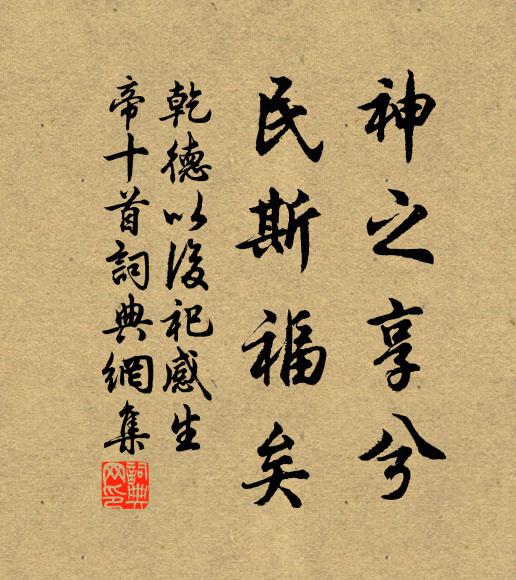 神之享兮
民斯福矣
乾德以後祀感生
帝十首詞典網集
詞典网印